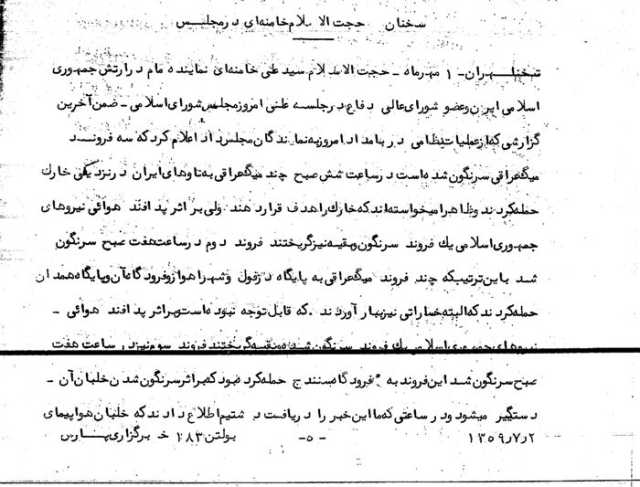 سخنان حجت الاسلام خامنه‌ای در مجلس
تهران - ۱ مهرماه - حجت الاسلام سید علی خامنه‌ای نماینده امام در ارتش جمهوری
اسلامی ایران وعضو شورای عالی دفاع در جلسه علنی امروز مجلس شورای اسلامی - ضمن آخرین
گزارشی که از عملیات نظامی در بامداد امروز به نمایندگان مجلس داد اعلام کرد که سه فروند
میگ عراقی سرنگون شده است در ساعت شش صبح چند میگ عراقی به ناوهای ایران در نزدیکی خارک
حمله کردند وظاهرا میخواسته اند که خارک را هدف قرار دهند ولی بر اثر پدافند هوائی نیروهای
جمهوری اسلامی یک فروند سرنگون وبقیه نیز گریختند فروند دوم در ساعت هفت صبح سرنگون
شد باین ترتیب که چند فروند میگ عراقی به پایگاه دزفول وشهر اهواز وفرودگاه آن وپایگاه همدان
حمله کردند که البته خساراتی نیز ببار آوردند .که قابل توجه نبوده است وبر اثر پدافند هوائی -
نیروهای جمهوری اسلامی یک فروند سرنگون شده وبقیه گریختند فروند سوم نیز در ساعت هفت
صبح سرنگون شد این فروند به فرودگاه سنندج حمله کرده بود که بر اثر سرنگون شدن خلبان آن -
دستگیر میشود ودر ساعتی که ما این خبر را دریافت داشتیم اطلاع دادند که خلبان هواپیمای
۱۳۵۹/۷/۲ - ۵ - بولتن ۱۸۳ خبرگزاری پارس